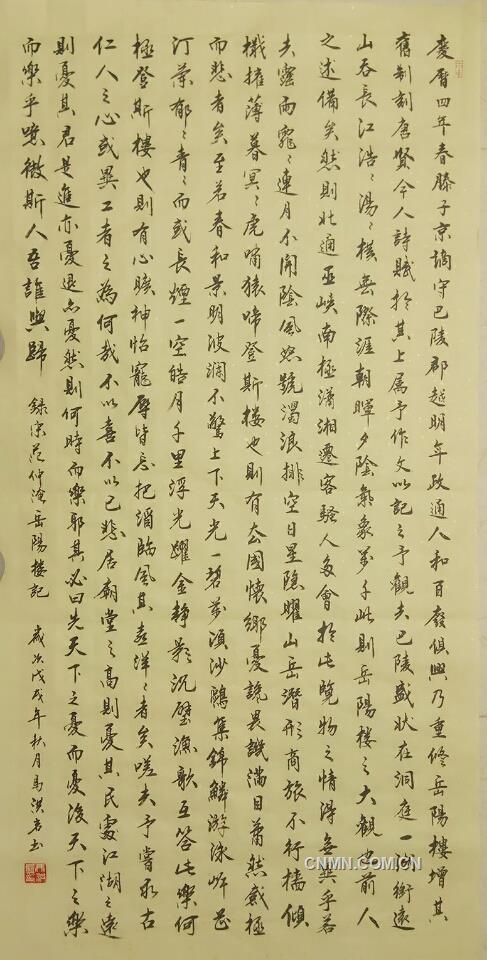 慶曆四年春滕子京謫守巴陵郡越明年政通人和百廢俱興乃重修岳陽樓增其
舊制刻唐賢今人詩賦於其上属予作文以記之予觀夫巴陵盛状在洞庭一湖銜遠
山吞長江浩〻湯〻橫無際涯朝暉夕陰氣象萬千此則岳陽樓之大觀也前人
之述備矣然則北通巫峽南極瀟湘遷客騷人多會於此覽物之情得無異乎若
夫霪雨霏〻連月不開陰風怒號濁浪排空日星隱曜山岳潛形商旅不行檣傾
楫摧薄暮冥〻虎嘯猿啼登斯樓也則有去國懷鄉憂讒畏譏滿目蕭然感極
而悲者矣至若春和景明波瀾不驚上下天光一碧萬頃沙鷗集錦鱗游泳岸芷
汀蘭郁〻青〻而或長煙一空皓月千里浮光躍金靜影沉璧漁歌互答此樂何
極登斯樓也則有心曠神怡寵辱皆忘把酒臨風其喜洋〻者矣嗟夫予嘗求古
仁人之心或異二者之為何哉不以喜不以己悲居廟堂之高則憂其民處江湖之遠
則憂其君是進亦憂退亦憂然則何時而樂耶其必曰先天下之憂而憂後天下之樂
而樂乎噫微斯人吾誰與歸 録宋范仲淹岳陽樓記 歲次戊戌年秋月馬洪書
CNMN.COM.CN